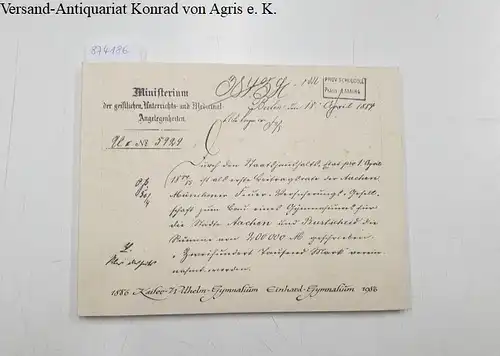 Versand-Antiquariat Konrad von Agris e. K.
874186
Ministerium
der geistlichen, Unterrichts- und Medicinal-
Angelegenheiten.
Berlin, den 18. April 1884
PROV. SCHULCOLL
No 5924
Durch den Staatshaushalts-Etat pro 1. April
1884/85 ist als erste Beitragsrate der Aachen
Münchener Feuer-Versicherungs-Gesell-
schaft zum Bau eines Gymnasiums für
die Städte Aachen und Burtscheid die
Summe von 200000 M geschrieben:
Zweihundert Tausend Mark verein-
nahmt worden.
1886 Kaiser-Wilhelm-Gymnasium Einhard-Gymnasium 1986